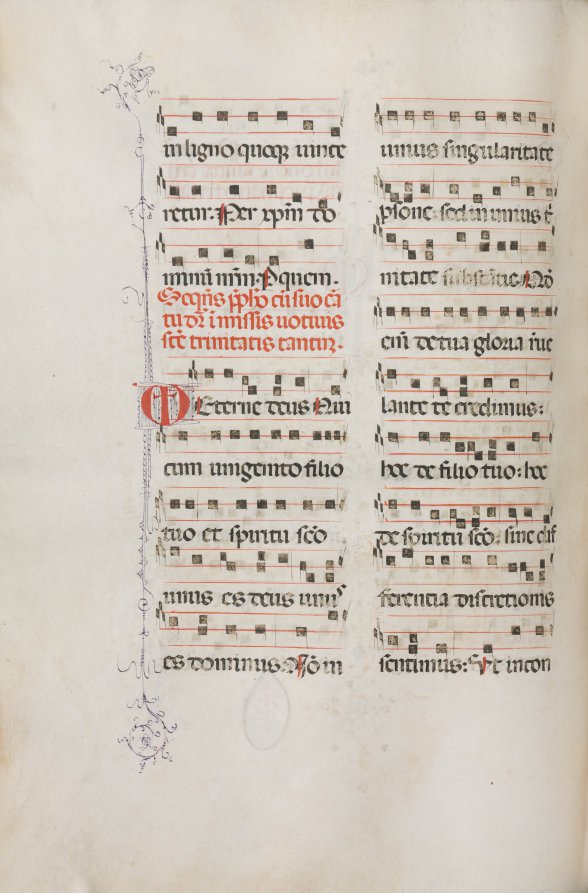 in ligno quoqꝫ uince
retur: Per xp̄m do
minū nr̄m. P quem.
Seqn̄s p̄fho cū suo cā
tu dr̄ ī missis uotiuis
sc̄e trinitatis cantur.
Eterne deus Qui
cum unigenito filio
tuo et spiritu sc̄o
unus es deus unus
es dominus. Nō in
unius singularitate
ꝑsone: sed in unius t̄
nitate substātie. Qd̄
eni de tua gloria reue
lante te credimus:
hoc de filio tuo: hoc
de spiritu sc̄o. sine dif
ferentia discretionis
sentimus: Ut in con